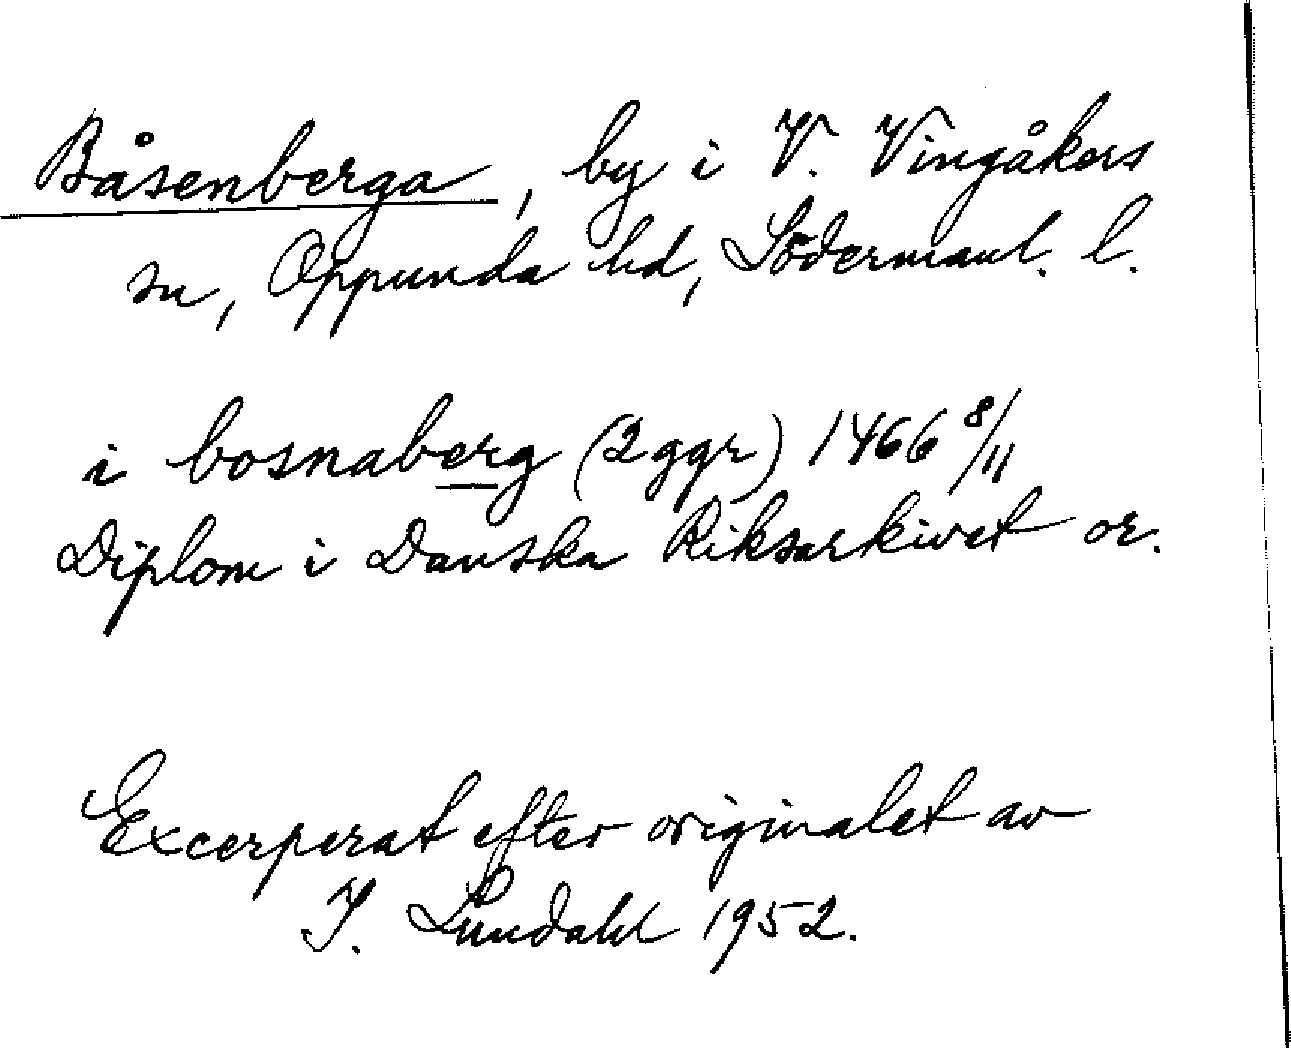 Båsenberga, by i V. Vingåkers
sn, Oppunda hd, Södermanl. l.
i bosnaberg (2 ggr) 1466 8/11
Diplom i Danska Riksarkivet or.
Excerperat efter originalet av
I. Lundahl 1952.